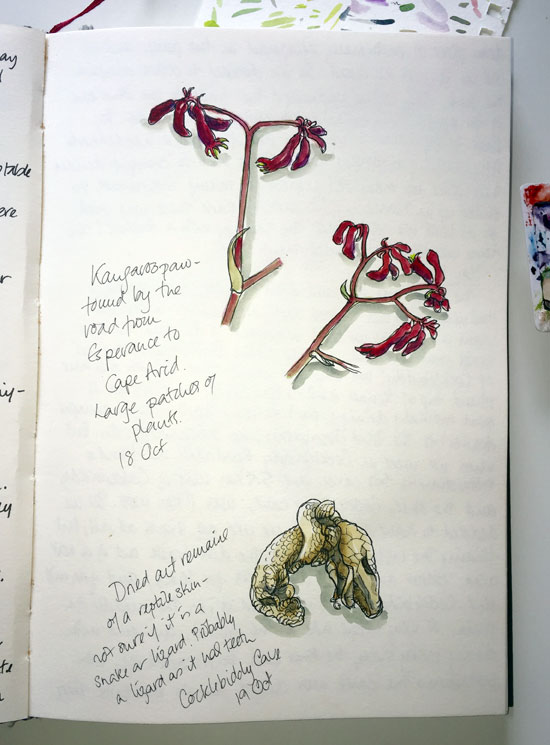 ay
table
ere
r
y-
ey
te
Kangaroo paw-
found by the
road from
Esperance to
Cape Arid.
Large patches of
plants.
18 Oct
Dried out remains
of a reptile skin-
not sure if it is a
snake or lizard. Probably
a lizard as it had teeth
Cocklebiddy Cave
19 Oct